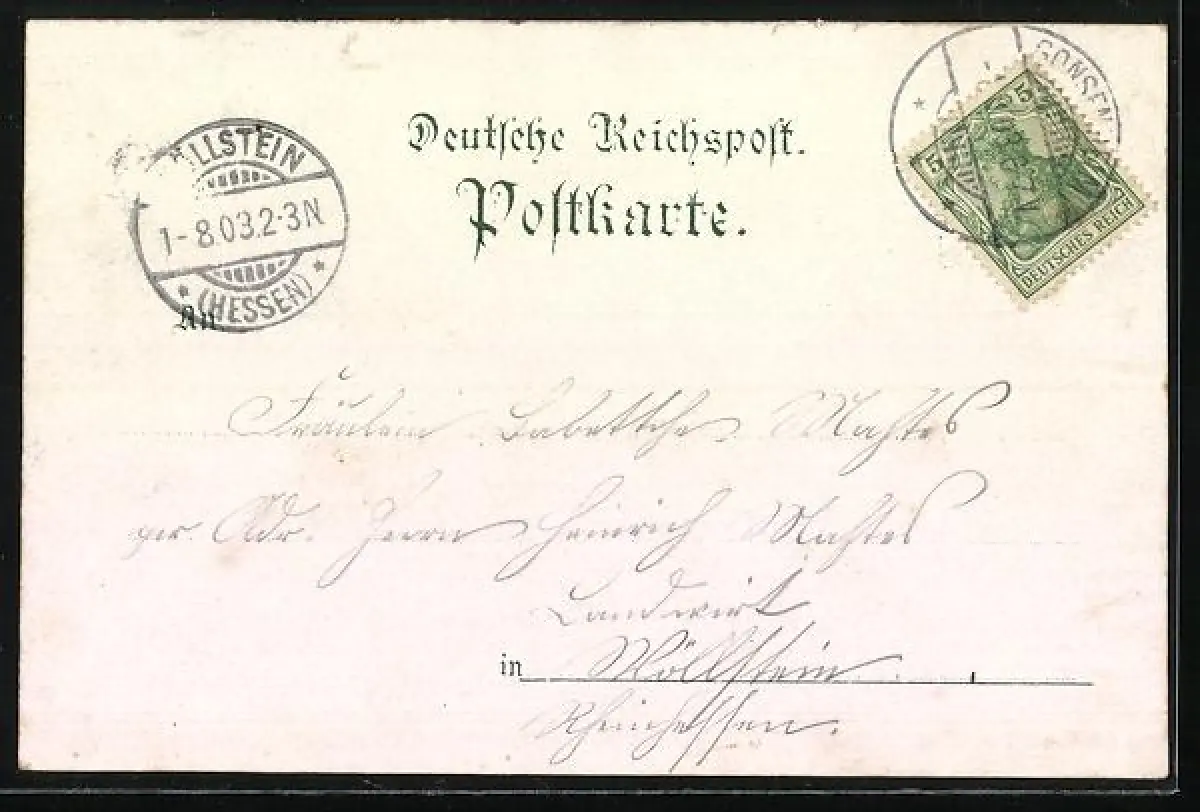 Deutsche Reichspost.
Postkarte.
LLSTEIN
1-8.03.2-3N
(HESSEN)
GONSEN
5
5
DEUTSCHES REICH
An
Fräulein Babettche Mahtes
per Adr. Herrn Heinrich Mahtes
Landwirt
in Wöllstein
Rheinhessen.